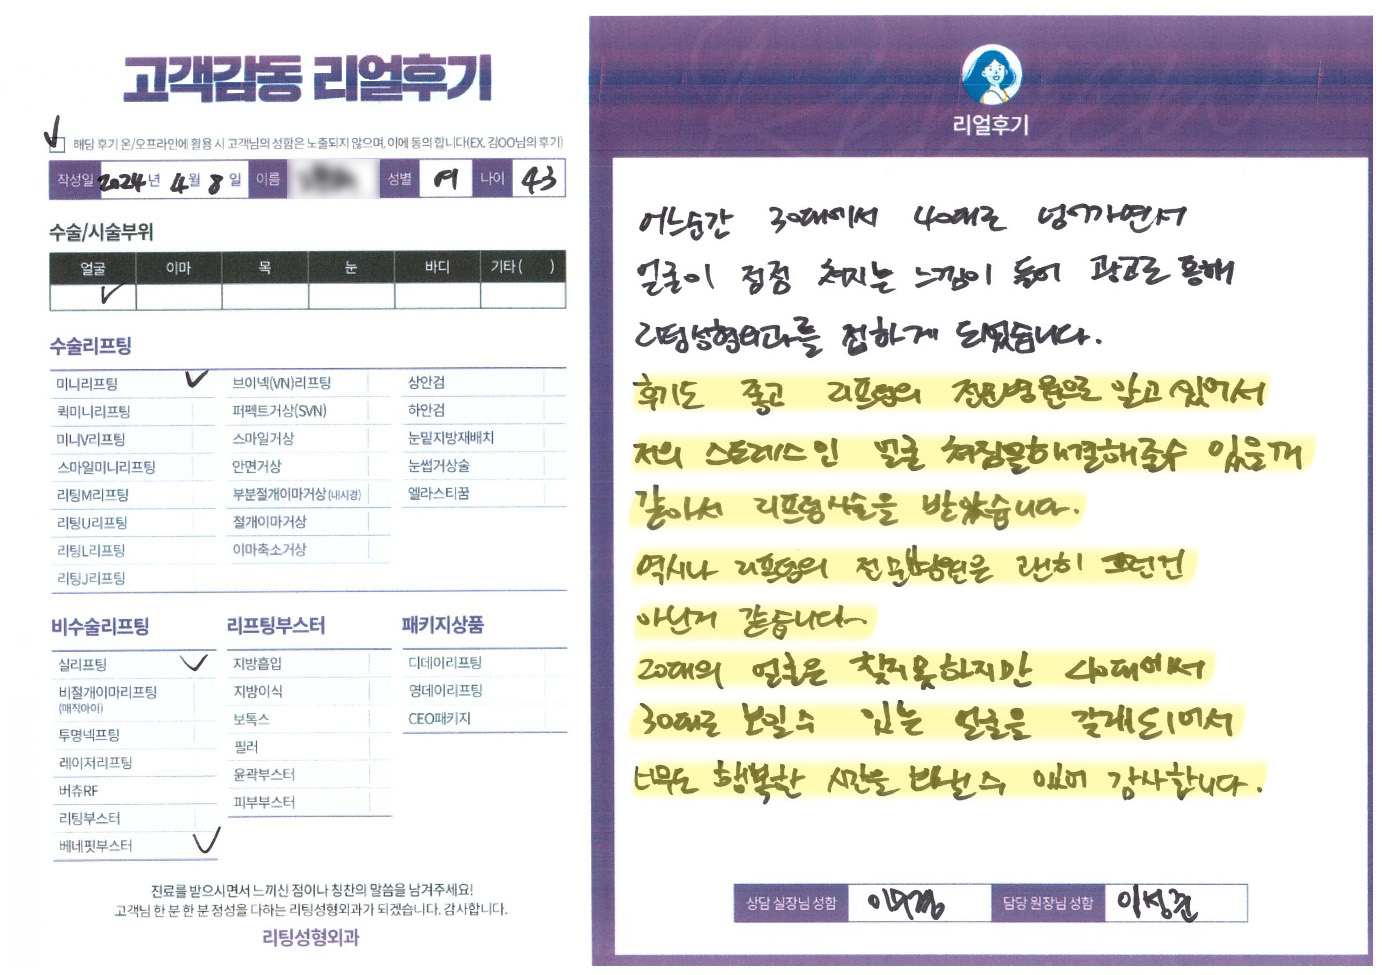 고객감동 리얼후기
해당 후기 온/오프라인에 활용 시 고객님의 성함은 노출되지 않으며, 이에 동의 합니다(EX. 김OO님의 후기)
작성일 2024년 4월 8일 이름 성별 여 나이 43
수술/시술부위
얼굴 이마 목 눈 바디 기타 ( )
수술리프팅
미니리프팅 브이넥(VN)리프팅 상안검
퀵미니리프팅 퍼펙트거상(SVN) 하안검
미니V리프팅 스마일거상 눈밑지방재배치
스마일미니리프팅 안면거상 눈썹거상술
리팅M리프팅 부분절개이마거상(내시경) 엘라스티꿈
리팅U리프팅 절개이마거상
리팅L리프팅 이마축소거상
리팅J리프팅
비수술리프팅 리프팅부스터 패키지상품
실리프팅 지방흡입 디데이리프팅
비절개이마리프팅 지방이식 영데이리프팅
(매직아이)
투명넥프팅 보톡스 CEO패키지
레이저리프팅 필러
버츄RF 윤곽부스터
리팅부스터 피부부스터
베네핏부스터
진료를 받으시면서 느끼신 점이나 칭찬의 말씀을 남겨주세요!
고객님 한 분 한 분 정성을 다하는 리팅성형외과가 되겠습니다. 감사합니다.
리팅성형외과
리얼후기
어느순간 30대에서 40대로 넘어가면서
얼굴이 점점 쳐지는 느낌이 들어 광고로 통해
리팅성형외과를 접하게 되었습니다.
후기도 좋고 리프팅의 전문병원으로 알고 있어서
저의 스트레스인 얼굴 쳐짐을 해결해줄수 있을꺼
같아서 리프팅시술을 받았습니다.
역시나 리프팅의 전문병원은 괜히 그런건
아닌거 같습니다~
20대의 얼굴은 찾지못하지만 40대에서
30대로 보일수 있는 얼굴을 갖게되어서
너무도 행복한 시간을 보낼수 있어 감사합니다.
상담 실장님 성함 담당 원장님 성함 이성준